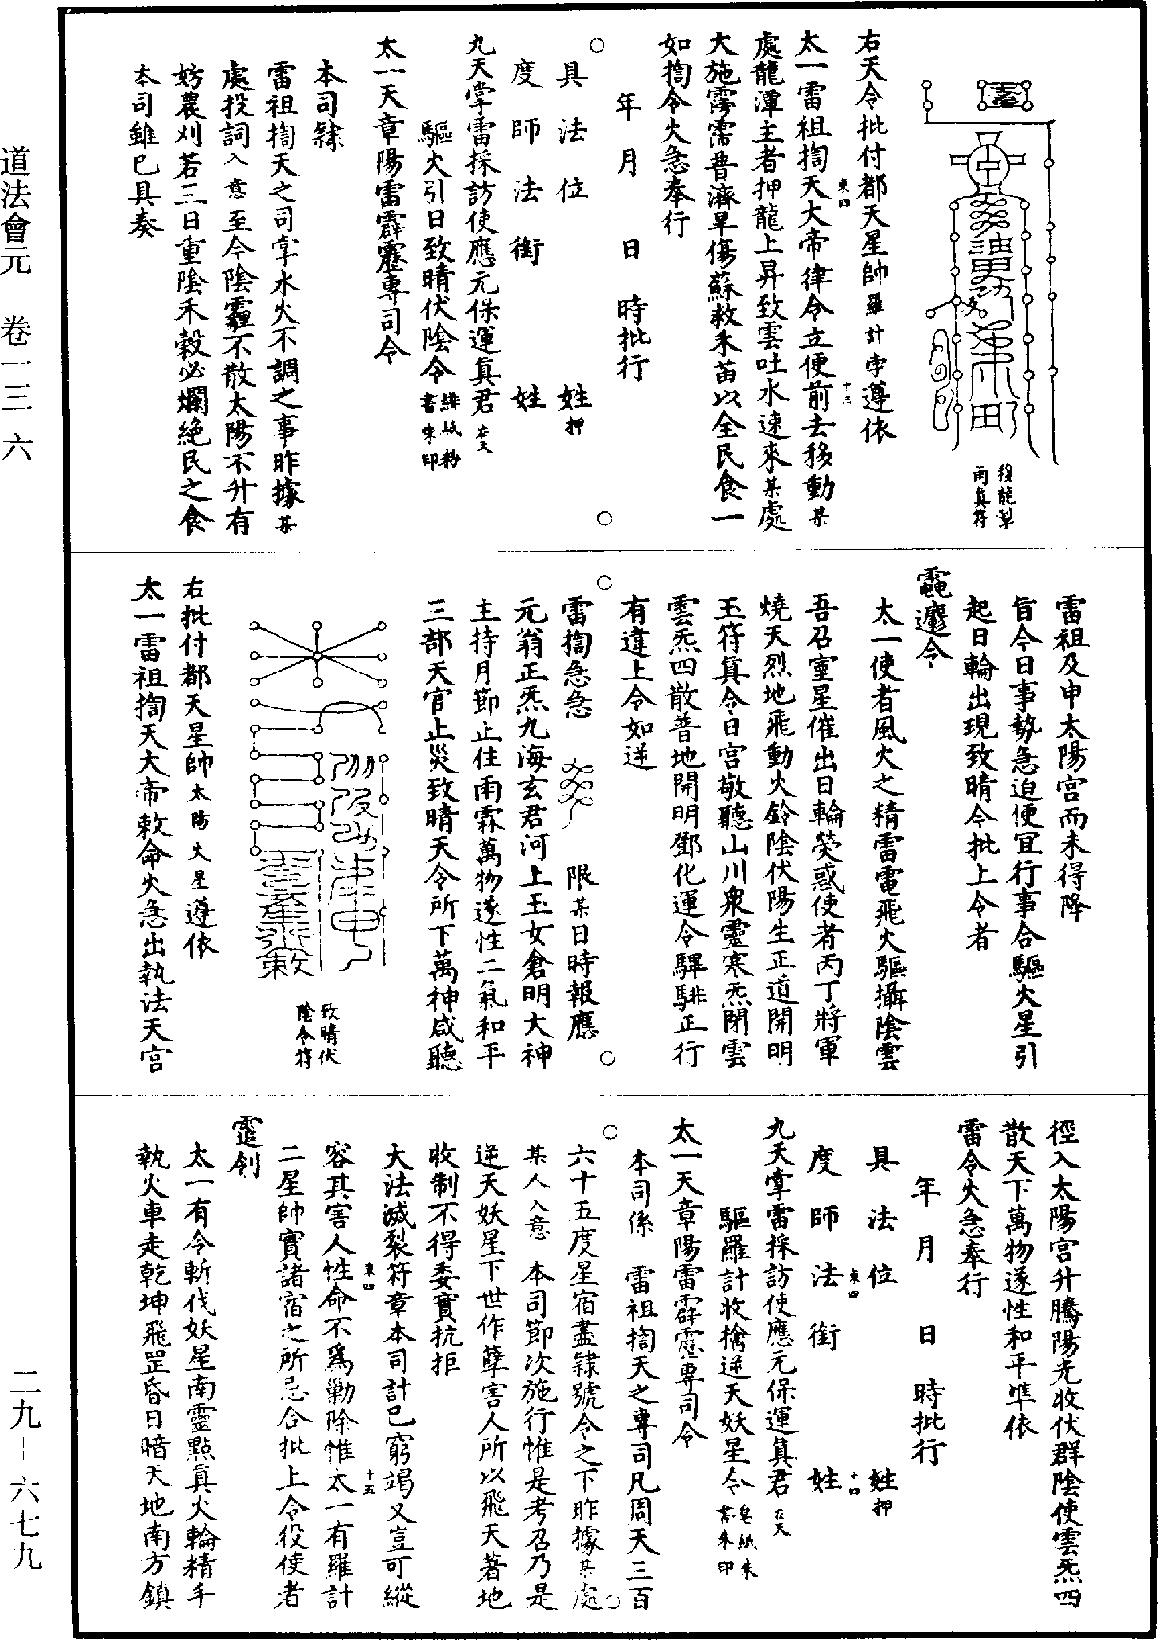 道法會元 卷一三六
役龍犁
雨真符
右天令批付都天星帥羅計孛遵依
太一雷祖搊天大帝律令立便前去移動某
處龍潭主者押龍上昇致雲吐水速來某處
大施霶霈普濟旱傷蘇救禾苗以全民食一
如搊令火急奉行
年 月 日 時批行
具 法 位 姓 押
度 師 法 銜 姓
九天掌雷採訪使應元保運真君 在天
驅火引日致晴伏陰令
太一天章陽雷霹靂專司令
本司隸
雷祖搊天之司掌水火不調之事昨據某
處投詞入意至今陰霾不散太陽不升有
妨農刈若三日重陰禾穀必爛絕民之食
本司雖已具奏
雷祖及申太陽宮而未得降
旨今日事勢急迫便宜行事合驅火星引
起日輪出現致晴令批上令者
遽令
太一使者風火之精雷電飛火驅攝陰雲
吾召靈星催出日輪熒惑使者丙丁將軍
燒天烈地飛動火鈴陰伏陽生正道開明
玉符真令日宮敬聽山川眾靈寒炁閉雲
雲炁四散普地開明鄧化運令騨騑正行
有違上令如逆
雷搊急急 限某日時報應
元翁正炁九海玄君河上玉女倉明大神
主持月節止住雨霖萬物遂性二氣和平
三部天官止災致晴天令所下萬神咸聽
致晴伏
陰令符
右批付都天星帥太陽火星遵依
太一雷祖搊天大帝敕命火急出執法天宮
徑入太陽宮升騰陽光收伏群陰使雲炁四
散天下萬物遂性和平準依
雷令火急奉行
年 月 日 時批行
具 法 位 姓 押
度 師 法 銜 姓
九天掌雷採訪使應元保運真君 在天
驅羅計收擒逆天妖星令
太一天章陽雷霹靂專司令
本司係 雷祖搊天之專司凡周天三百
六十五度星宿盡隸號令之下昨據某處
某人入意 本司節次施行惟是考召乃是
逆天妖星下世作孽害人所以飛天著地
收制不得委實抗拒
大法滅裂符章本司計已窮竭又豈可縱
容其害人性命不為勦除惟太一有羅計
二星帥實諸宿之所忌合批上令役使者
靈劄
太一有令斬伐妖星南靈點真火輪精手
執火車走乾坤飛罡昏日暗天地南方鎮
二九－六七九